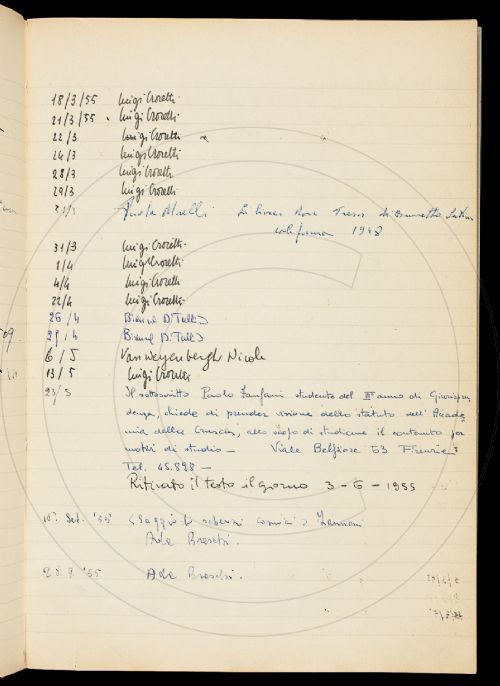 18/3/55 Luigi Crocetti
21/3/55 Luigi Crocetti
22/3 Luigi Crocetti
24/3 Luigi Crocetti
28/3 Luigi Crocetti
29/3 Luigi Crocetti
31/3 Li Livres dou Tresor di Brunetto Latini
California 1948
31/3 Luigi Crocetti
1/4 Luigi Crocetti
4/4 Luigi Crocetti
22/4 Luigi Crocetti
26/4
27/4
6/5 Vanweyenbergh Nicole
13/5 Luigi Crocetti
23/5 Il sottoscritto Paolo Fanfani studente del III anno di Giurispru
denza, chiede di prender visione dello statuto dell'Accade
mia della Crusca, allo scopo di studiarne il contenuto per
motivi di studio - Viale Belfiore 53 Firenze
Tel. 45.898 -
Ritirato il testo il giorno 3-6-1955
Set. '55 Zannoni
Ada Breschi.
28.9.'55 Ada Breschi.